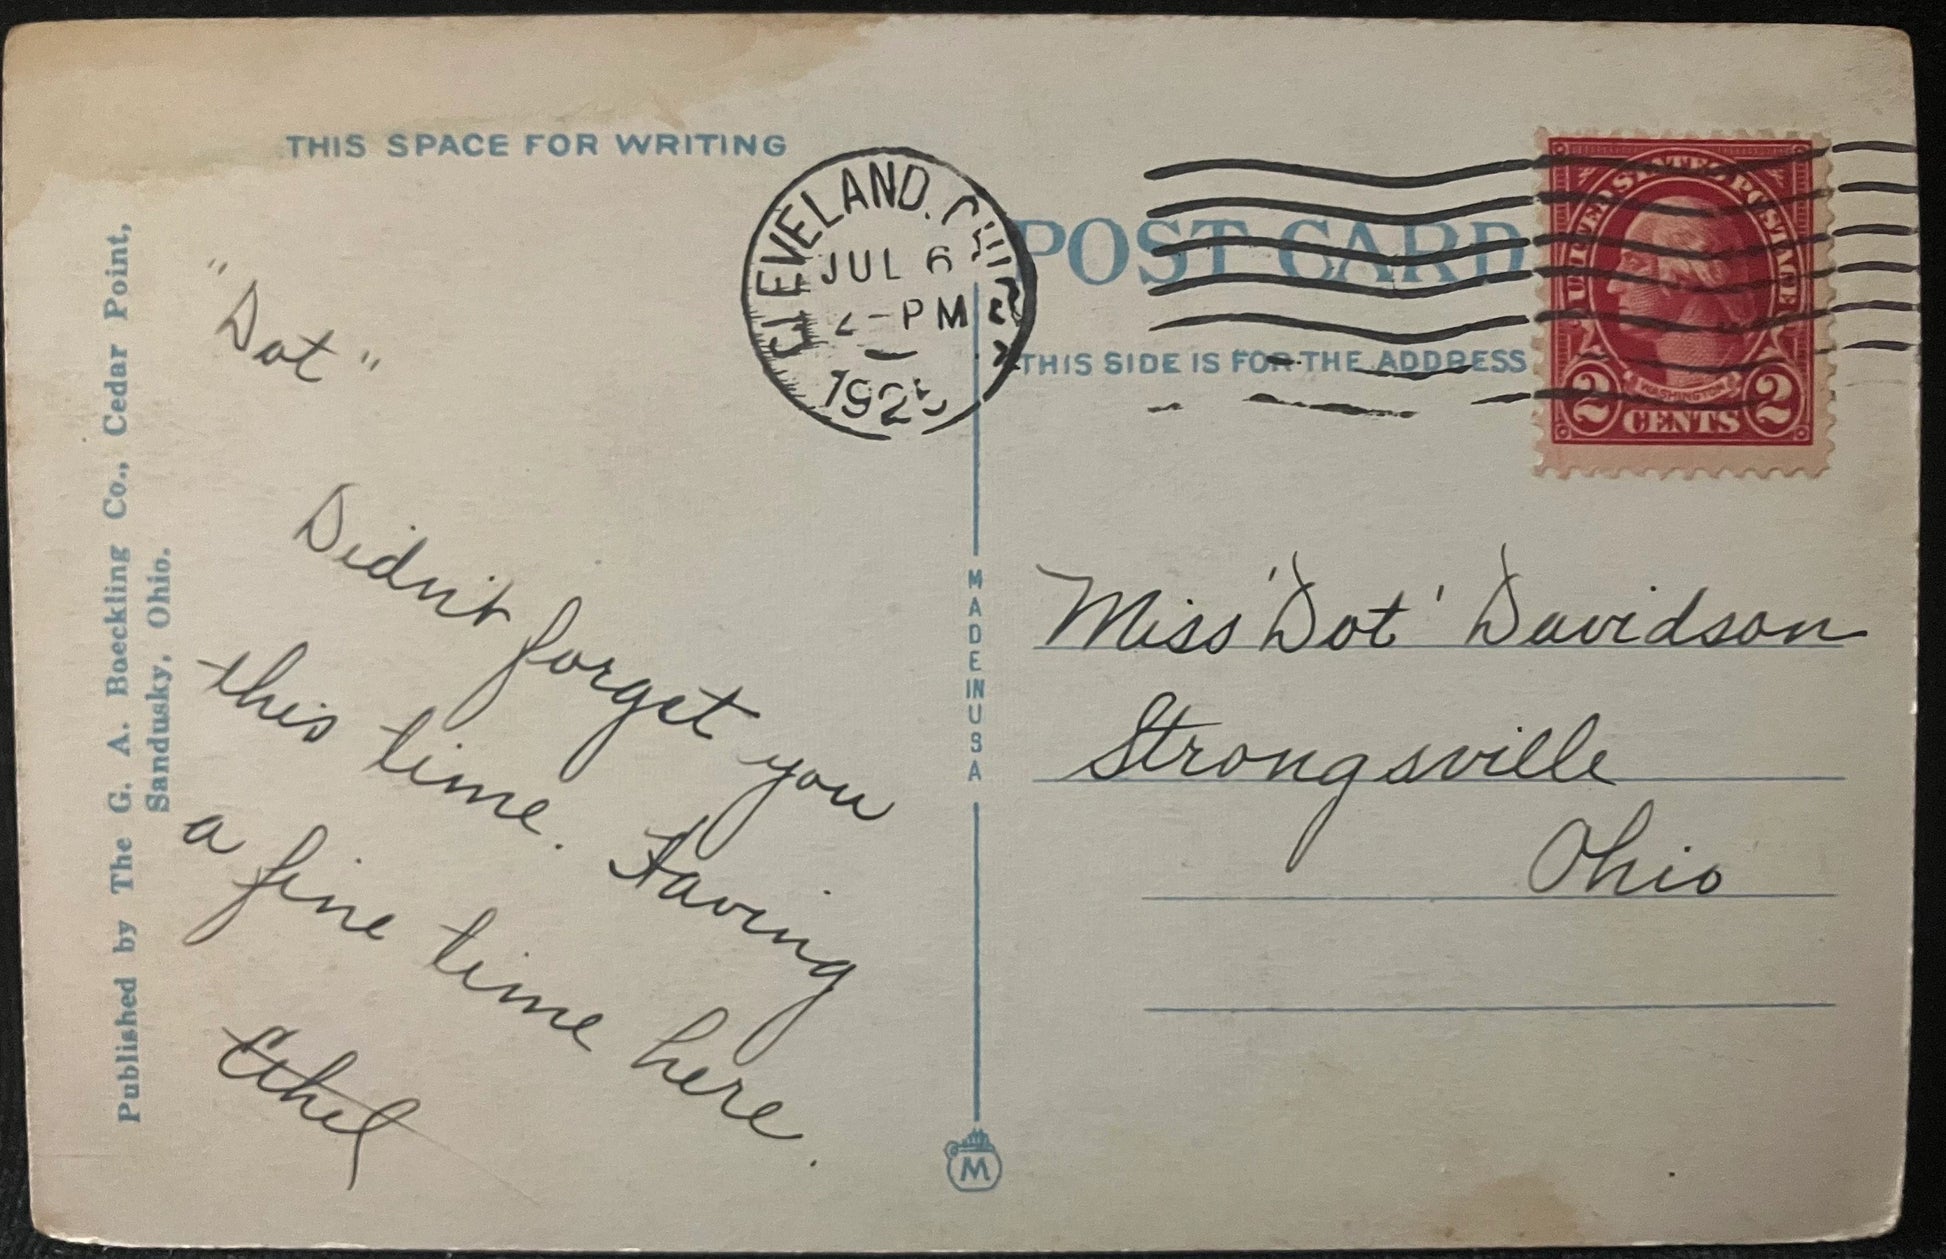 THIS SPACE FOR WRITING
Published by The G. A. Boeckling Co., Cedar Point,
Sandusky, Ohio.
"Dot"
Didn't forget you
this time. Having
a fine time here.
Ethel
CLEVELAND, OHIO
JUL 6
2-PM
1925
MADE IN USA
M
POST CARD
THIS SIDE IS FOR THE ADDRESS
UNITED STATES POSTAGE
WASHINGTON
2 CENTS 2
Miss 'Dot' Davidson
Strongsville
Ohio